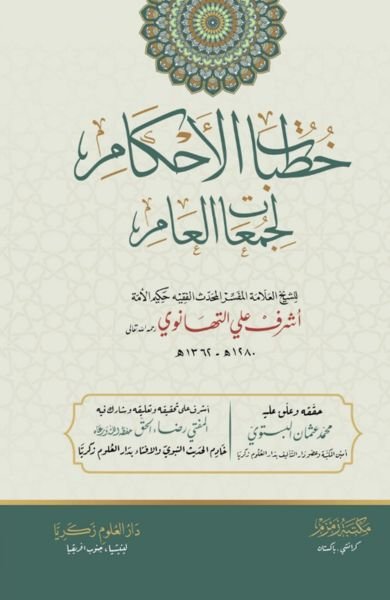 خُطُبَاتُ الأَحْكَامِ
لِجُمُعَاتِ العَامِ
للشيخ العلامة المفسّر المحدث الفقيه حكيم الأمة
أشرف علي التهانوي رحمه الله تعالى
١٢٨٠هـ - ١٣٦٢هـ
حققه وعلق عليه
محمد عثمان البستوي
أمين المكتبة وعضو دار التأليف بدار العلوم زكريا
أشرف على تحقيقه وتعليقه وشارك فيه
المفتي رضاء الحق حفظه الله ورعاه
خادم الحديث النبوي والافتاء بدار العلوم زكريا
مكتبة زمزم
كراتشي، باكستان
دار العلوم زكريا
لينيشيا، جنوب افريقيا